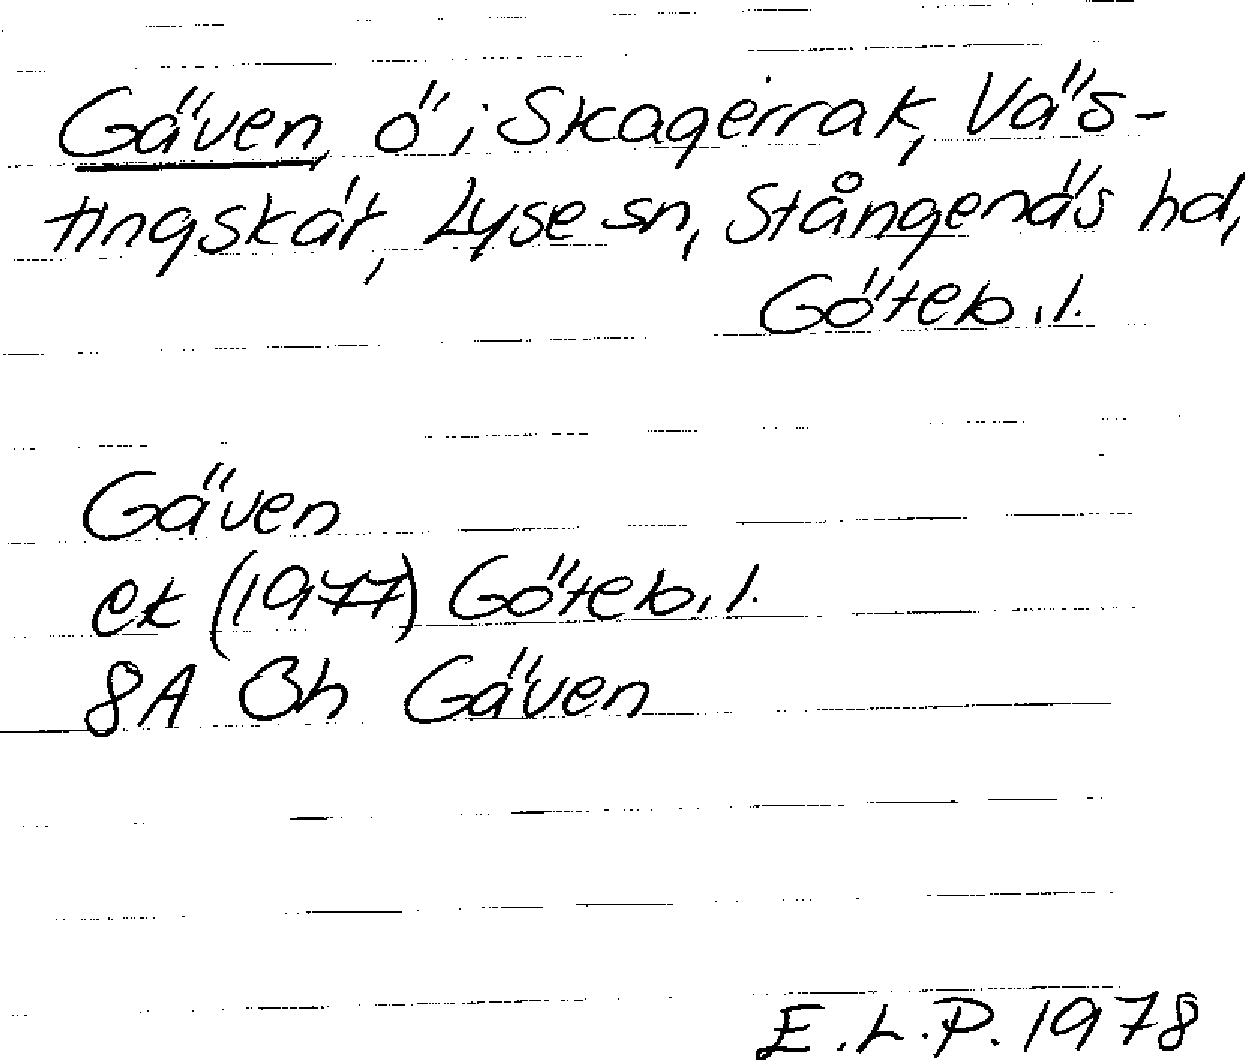 Gäven, ö i Skagerrak, Väs-
tingskär, Lyse sn, Stångenäs hd,
Göteb. l.
Gäven
ek (1977) Göteb. l.
8A Bh Gäven
E.L.P. 1978